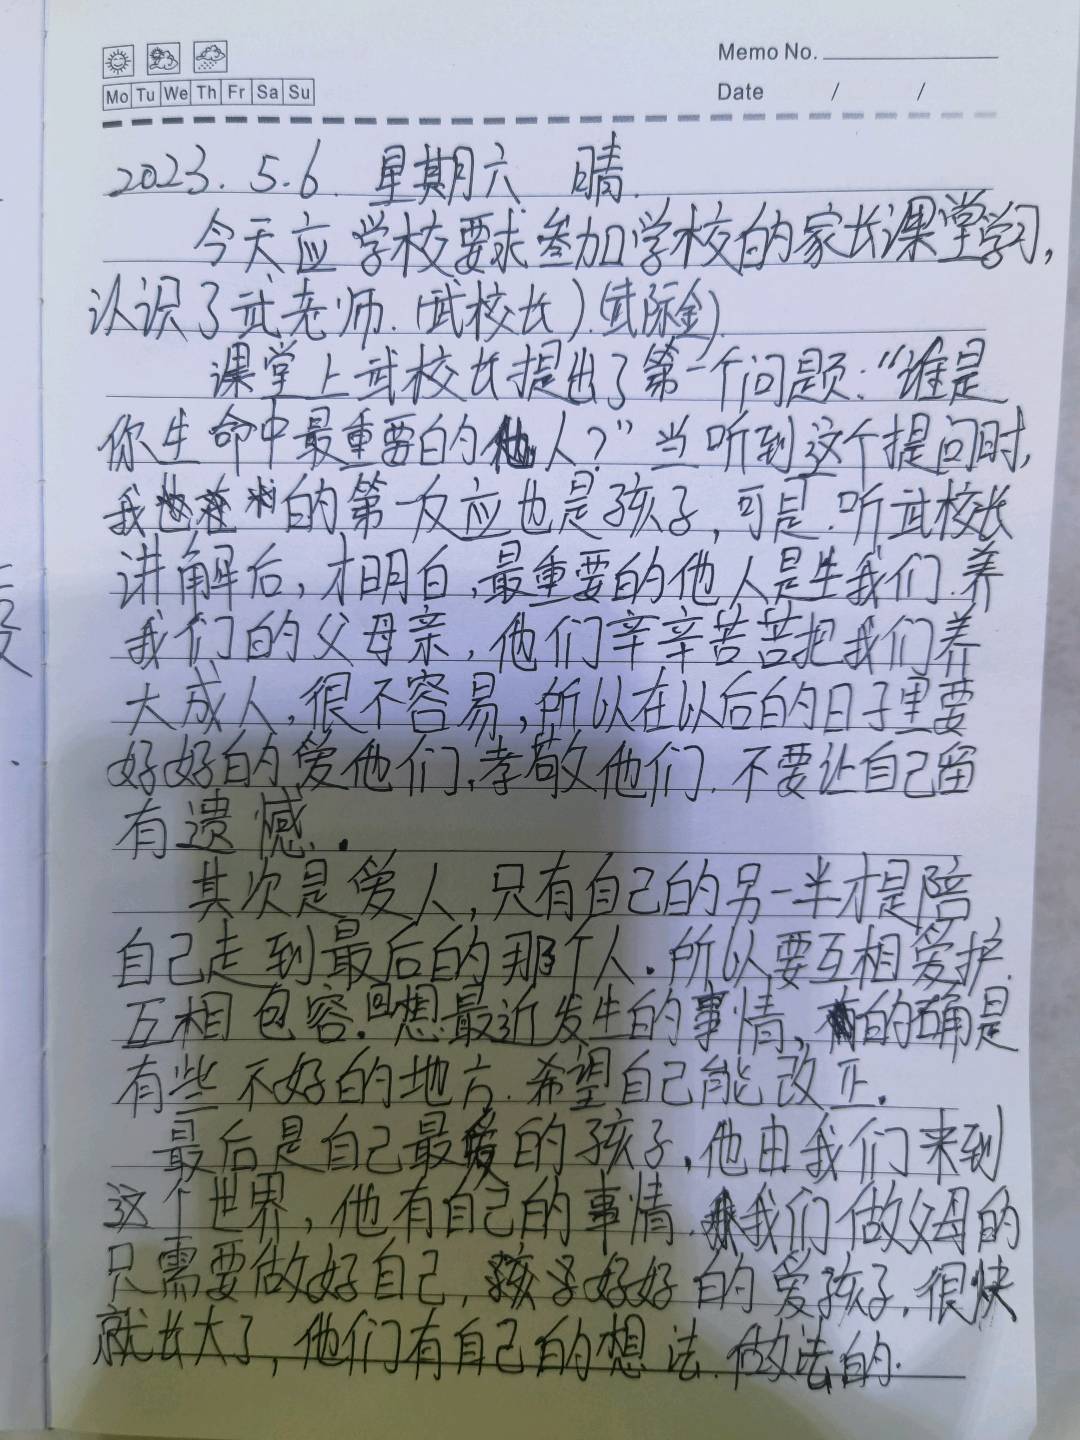 Memo No.
Mo Tu We Th Fr Sa Su
Date / /
2023.5.6. 星期六 晴.
今天应学校要求参加学校的家长课堂学习,
认识了武老师.(武校长).(武际金)
课堂上武校长提出了第一个问题:“谁是
你生命中最重要的他人?”当听到这个提问时,
我的第一反应也是孩子,可是.听武校长
讲解后,才明白,最重要的他人是生我们.养
我们的父母亲,他们辛辛苦苦把我们养
大成人,很不容易,所以在以后的日子里要
好好的爱他们,孝敬他们.不要让自己留
有遗憾.
其次是爱人,只有自己的另一半才是陪
自己走到最后的那个人.所以要互相爱护.
互相包容.回想最近发生的事情,的确是
有些不好的地方.希望自己能改正.
最后是自己最爱的孩子,他由我们来到
这个世界,他有自己的事情.我们做父母的
只需要做好自己,好好的爱孩子.很快
就长大了,他们有自己的想法.做法的.